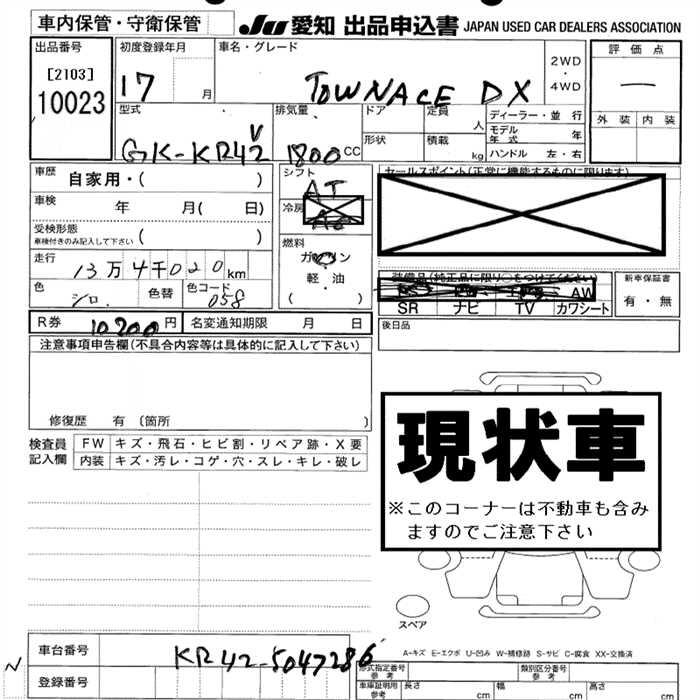 車内保管・守衛保管
JU 愛知 出品申込書 JAPAN USED CAR DEALERS ASSOCIATION
出品番号
[2103]
10023
初度登録年月
17 月
車名・グレード
TOWNACE DX
2WD
・
4WD
評価点
—
外装 内装
型式
GK-KR42V
排気量
1800 CC
ドア
定員
人
形状
積載
kg
ディーラー・並行
モデル年式 年
ハンドル 左・右
車歴
自家用・( )
車検
年 月( 日)
受検形態
車検付きのみ記入して下さい ( )
走行
13万4千020km
色
シロ
色替
色コード
058
シフト
AT
冷房
AC
燃料
ガソリン
軽・油
( )
セールスポイント(正常に機能するものに限ります)
装備品(純正品に限り○をつけてください)
AW
SR ナビ TV カワシート
新車保証書
有・無
後日品
R券 10200円 名変通知期限 月 日
注意事項申告欄(不具合内容等は具体的に記入して下さい)
修復歴 有 〔箇所 〕
検査員記入欄
FW キズ・飛石・ヒビ割・リペア跡・X要
内装 キズ・汚レ・コゲ・穴・スレ・キレ・破レ
現状車
※このコーナーは不動車も含み
ますのでご注意下さい
スペア
A-キズ E-エクボ U-凹み W-補修跡 S-サビ C-腐食 XX-交換済
車台番号
KR42-5047286
登録番号
N
形式指定番号
参考
類別区分番号
参考
車庫証明用
参考
長さ cm 幅 cm 高さ cm